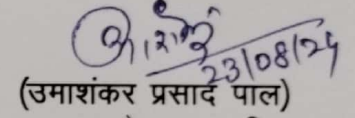 23/08/24
(उमाशंकर प्रसाद पाल)